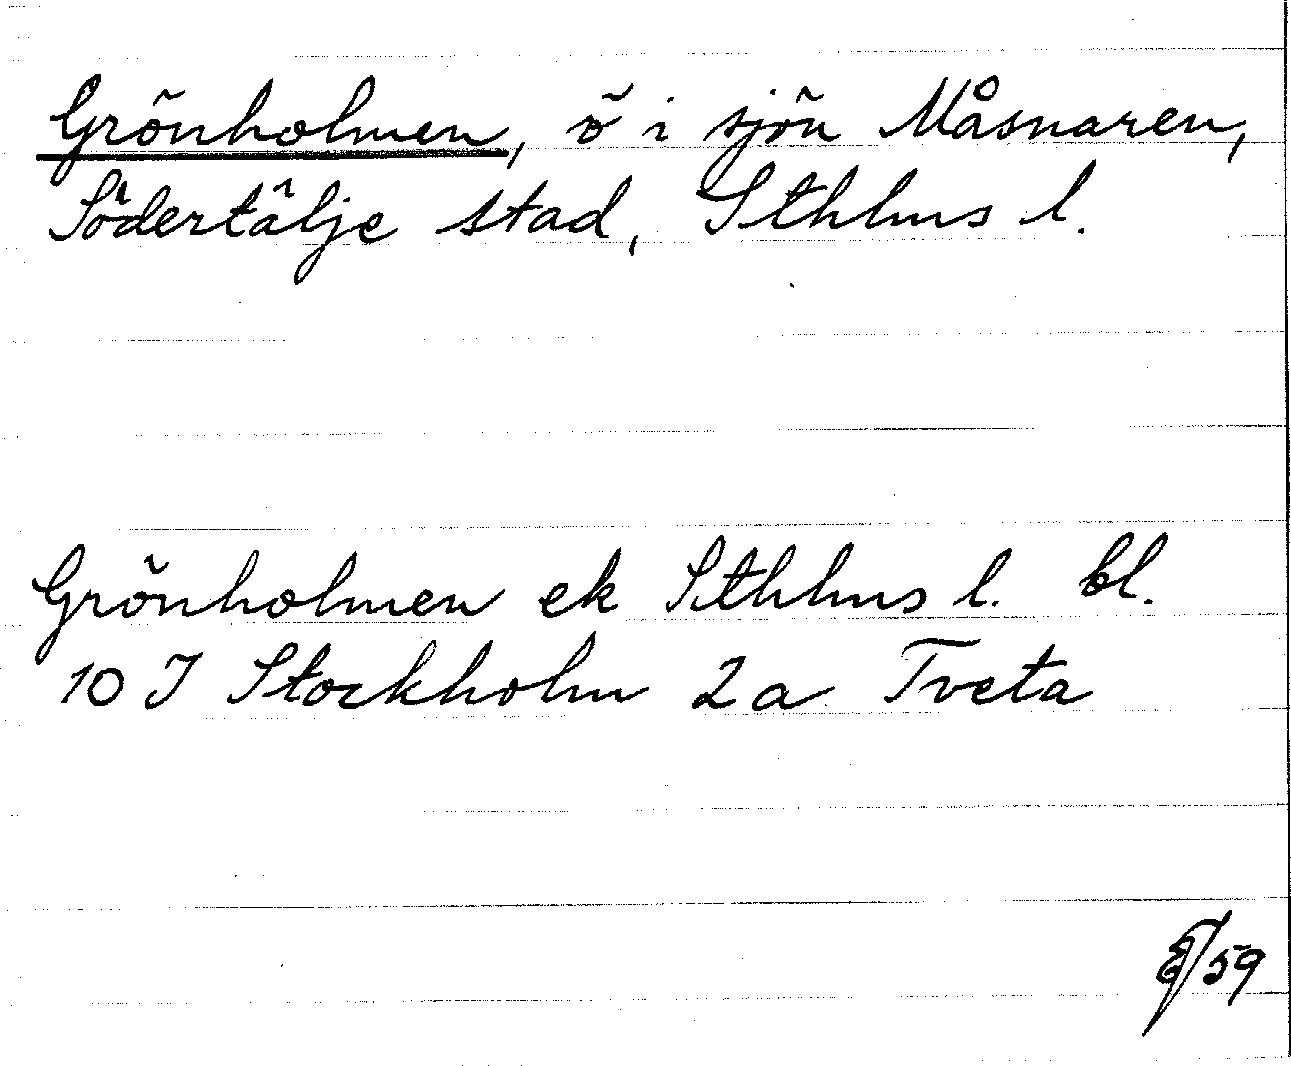 Grönholmen, ö i sjön Måsnaren,
Södertälje stad, Sthlms l.
Grönholmen ek Sthlms l. bl.
10 I Stockholm 2a Tveta
/59